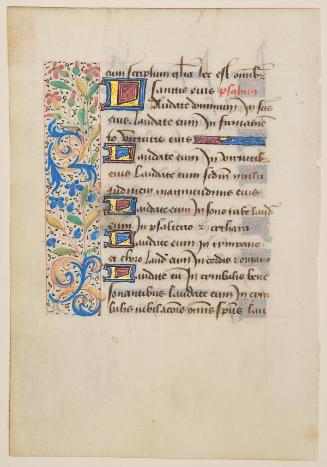 cum scriptum gl̃ia hec est omnib̃
sanctis eius psalmus
Laudate dominum In scis
eius. laudate eum In firmamẽ
to virtutis eius
Laudate eum In virtutib̃
eius laudate eum scdm̃ multi
tudinem magnitudinis eius
Laudate eum In sono tube laud
eum In psalterio ⁊ cythara
Laudate eum In timpano
et choro laud̃ eum In cordis ⁊ organo
Laudate eũ In cymbalis bene
sonantibus laudate eum In cym
balis iubilacõis omnis sp̃us lau